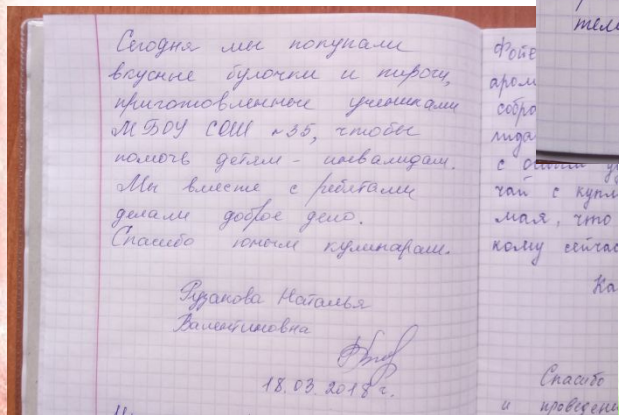 Сегодня мы покупали
вкусные булочки и пироги,
приготовленные учениками
МБОУ СОШ №35, чтобы
помочь детям - инвалидам.
Мы вместе с ребятами
делали доброе дело.
Спасибо юным кулинарам.
Рузанова Наталья
Валентиновна
18.03.2018 г.
фойе
аром
собра
с
чай с купл
мая, что
кому сейчас
Ка
Спасибо
и проведен
теле